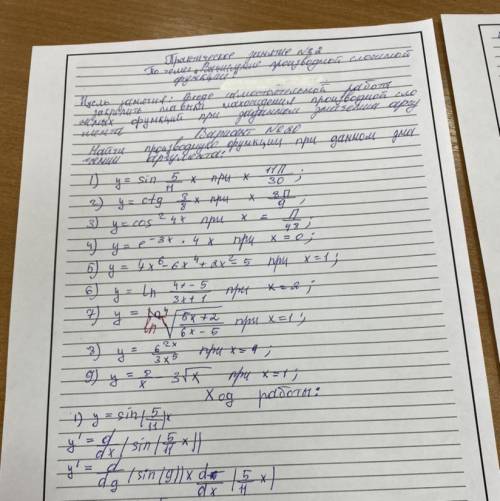 Практическое занятие №32
По теме: Вычисление производной сложной
функции
Цель занятия: входе самостоятельной работы
закрепить навыки нахождения производной сло
жных функций при заданном значении аргу
мента
Вариант №20
Найти производную функции при данном зна
чении аргумента:
1) y = sin 5/11 x при x 11π/30;
2) y = ctg 3/8 x при x 8π/9;
3) y = cos² 4x при x = π/48;
4) y = e^-3x · 4x при x = 0;
5) y = 4x⁶ - 6x⁴ + 2x² - 5 при x = 1;
6) y = ln (4x - 5)/(3x + 1) при x = 2;
7) y = ln ⁴√((5x + 2)/(6x - 5)) при x = 1;
8) y = 6^2x/3x⁵ при x = 1;
9) y = 2/x 3√x при x = 1;
Ход работы:
1) y = sin(5/11)x
y' = d/dx (sin(5/11 x))
y' = d/dg (sin(g)) x d/dx (5/11 x)